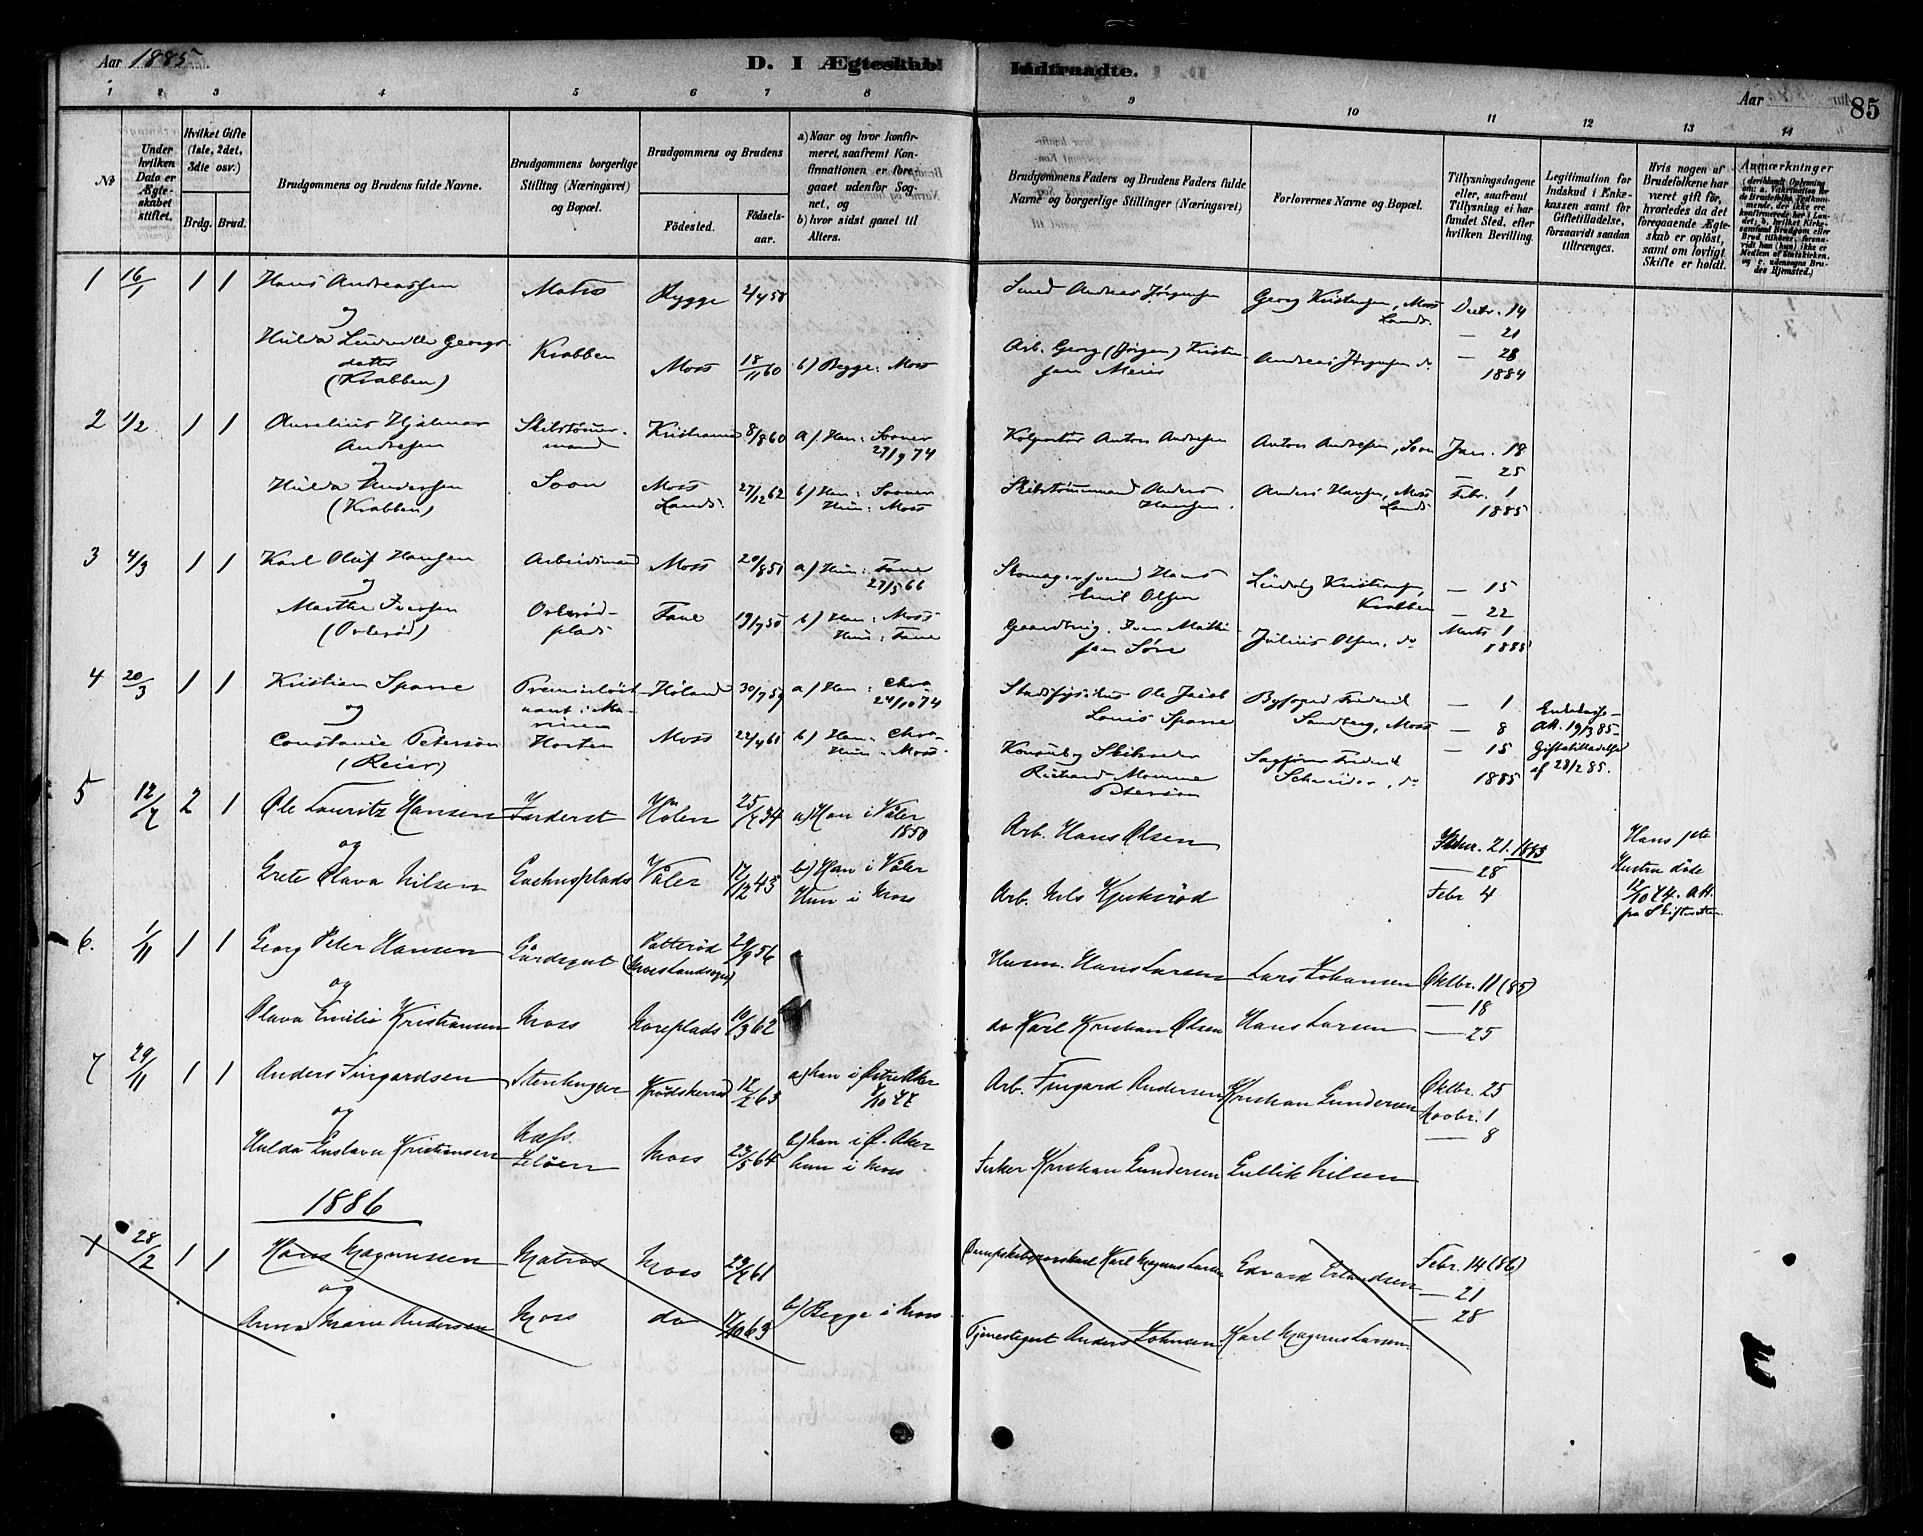 Aar 1885
D. I Ægteskab Indtraadte.
Aar
85
1 2 3 4 5 6 7 8 9 10 11 12 13 14
№
Under hvilken Dato er Ægteskabet stiftet.
Hvilket Gifte (1ste, 2det, 3die osv.)
Brdg. Brud.
Brudgommens og Brudens fulde Navne.
Brudgommens borgerlige Stilling (Næringsvei) og Bopæl.
Brudgommens og Brudens
Födested.
Födselsaar.
a) Naar og hvor konfirmeret, saafremt Konfirmationen er foregaaet udenfor Sognet, og
b) hvor sidst gaaet til Alters.
Brudgommens Faders og Brudens Faders fulde Navne og borgerlige Stillinger (Næringsvei)
Forlovernes Navne og Bopæl.
Tillysningsdagene eller, saafremt Tillysning ei har fundet Sted, efter hvilken Bevilling.
Legitimation for Indskud i Enkekassen samt for Giftetilladelse, forsaavidt saadan tiltrænges.
Hvis nogen af Brudefolkene har været gift för, hvorledes da det foregaaende Ægteskab er oplöst, samt om lovligt Skifte er holdt.
Anmærkninger
1 16/1 1 1 Hans Andreassen Matros Rygge 2/4 58 Smed Andreas Jørgensen Georg Kristensen, Moss Lands. Decbr. 14
og — 21
Hulda Georgs datter Krabben Moss 18/11 60 b) Begge: Moss Arb. Georg (Jørgen) Kristensen Meier Andreas Jørgensen do — 28
(Krabben) 1884
2 1/2 1 1 Aurelius Hjalmar Andresen Skibstømmermand Kristiania 8/8 60 a) Han: Sooner 27/9 74 Kolportør Anton Andresen Anton Andresen, Soon Jan. 18
og — 25
Hulda Andersen Soon Moss Lands. 27/12 62 b) Han: Sooner Skibstømmermand Anders Hansen. Anders Hansen, Moss Lands. Febr. 1
(Krabben) Hun: Moss 1885
3 4/3 1 1 Karl Oluf Hansen Arbeidsmand Moss 20/8 51 a) Hun: 27/5 66 Hans Emil Olsen Ludvig Kristensen, Krabben — 15
og — 22
Marthe Iversen Orkerødplads 19/7 50 b) Han: Moss Gaardbrug. Iver Mathisen Julius Olsen, do Marts 1
(Orkerød) Hun: 1885
4 20/3 1 1 Kristian Sparre Premierløitnant i Marinen Høland 30/7 59 a) Han: Chra 24/10 74 Stadsfysikus Ole Jacob Louis Sparre Byfoged Frederik Sandberg, Moss — 1
og — 8 Att. 19/3 85
Constance Peterson Horten Moss 22/4 61 b) Han: Chra Konsul og Skibsreder Richard Momme Peterson Sagfører Frederik Schneider, do — 15 Giftetilladelse
(Reier) Hun: Moss 1885 af 28/2 85.
5 12/7 2 1 Ole Lauritz Hansen Inderst Hölen 25/7 34 a) Han i Våler 1850 Arb. Hans Olsen 21. 1883 Hans 1ste
og — 28 Hustru döde
Grete Olava Nilsen Våler 17/12 43 b) Han i Våler Arb. Nils Febr 4 12/10 74. Att.
Hun i Moss fra Skifteretten
6. 1/11 1 1 Georg Peter Hansen Gårdsgut Patterød (Moss Landsogn) 29/9 56 Husm. Hans Larsen Lars Johansen Oktbr. 11 (85)
og — 18
Olava Emilie Kristiansen Moss Noreplads 10/3 62 do Karl Kristian Olsen Hans Larsen — 25
7 29/11 1 1 Anders Fingardsen Stenhugger Krødsherred 12/2 63 a) han i Østre Aker 7/10 77 Arb. Fingard Andersen Kristian Gundersen Oktbr. 25
og Novbr. 1
Hulda Gustava Kristiansen Næss Jeløen Moss 23/5 64 b) han i Ø. Aker Fisker Kristian Gundersen Gullik Nilsen — 8
hun i Moss
1886
1 28/2 1 1 Hans Magnussen Matros Moss 23/4 61 Karl Magnus Larsen Edvard Erlandsen Febr. 14 (86)
og — 21
Anna Marie Andersen Moss do 17/10 63 b) Begge i Moss Tjenestegut Anders Johnsen Karl Magnus Larsen — 28